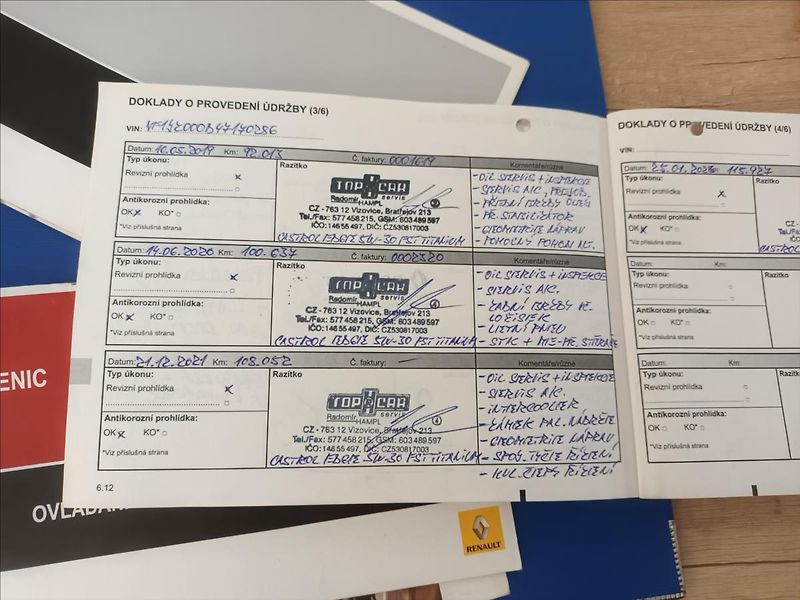 DOKLADY O PROVEDENÍ ÚDRŽBY (3/6)
VIN:
Datum: 10.05.2019 Km: 92.013 Č. faktury: 0001619 Komentáře/různé
Typ úkonu: Razítko
Revizní prohlídka x
Antikorozní prohlídka:
OK x KO*
*Viz příslušná strana
TOP CAR
servis
Radomír HAMPL
CZ - 763 12 Vizovice, Bratřejov 213
Tel./Fax: 577 458 215, GSM: 603 489 597
IČO: 146 55 497, DIČ: CZ530817003
CASTROL EDGE 5W-30 FST TITANIUM
- OIL SERVIS + INSPEKCE
- SERVIS A/C,
- PŘEDNÍ BRZDY
- PŘ. STABILIZÁTOR
- GEOMETRIE NÁPRAV
- POMOCNÝ POHON ALT.
Datum: 14.06.2020 Km: 100.637 Č. faktury: 0002320 Komentáře/různé
Typ úkonu: Razítko
Revizní prohlídka x
Antikorozní prohlídka:
OK x KO*
*Viz příslušná strana
TOP CAR
servis
Radomír HAMPL
CZ - 763 12 Vizovice, Bratřejov 213
Tel./Fax: 577 458 215, GSM: 603 489 597
IČO: 146 55 497, DIČ: CZ530817003
CASTROL EDGE 5W-30 FST TITANIUM
- OIL SERVIS + INSPEKCE
- SERVIS A/C.
- ZADNÍ BRZDY VČ.
LOŽISEK
- LETNÍ PNEU
- STK + ME-PŘ. STĚRAČE
Datum: 21.12.2021 Km: 108.052 Č. faktury: Komentáře/různé
Typ úkonu: Razítko
Revizní prohlídka x
Antikorozní prohlídka:
OK x KO*
*Viz příslušná strana
TOP CAR
servis
Radomír HAMPL
CZ - 763 12 Vizovice, Bratřejov 213
Tel./Fax: 577 458 215, GSM: 603 489 597
IČO: 146 55 497, DIČ: CZ530817003
CASTROL EDGE 5W-30 FST TITANIUM
- OIL SERVIS + INSPEKCE
- SERVIS A/C.
- INTERCOOLER
- ZÁMEK PAL. NÁDRŽE
- GEOMETRIE NÁPRAV
- SPOJ. TYČE ŘÍZENÍ
- KUL. ČEPY ŘÍZENÍ
6.12
DOKLADY O PROVEDENÍ ÚDRŽBY (4/6)
VIN:
Datum: 25.01. Km: 115.927
Typ úkonu: Razítko
Revizní prohlídka x
Antikorozní prohlídka:
OK x KO*
*Viz příslušná strana
Datum: Km:
Typ úkonu: Razítko
Revizní prohlídka
Antikorozní prohlídka:
OK KO*
*Viz příslušná strana
Datum: Km:
Typ úkonu: Razítko
Revizní prohlídka
Antikorozní prohlídka:
OK KO*
*Viz příslušná strana
ENIC
RENAULT